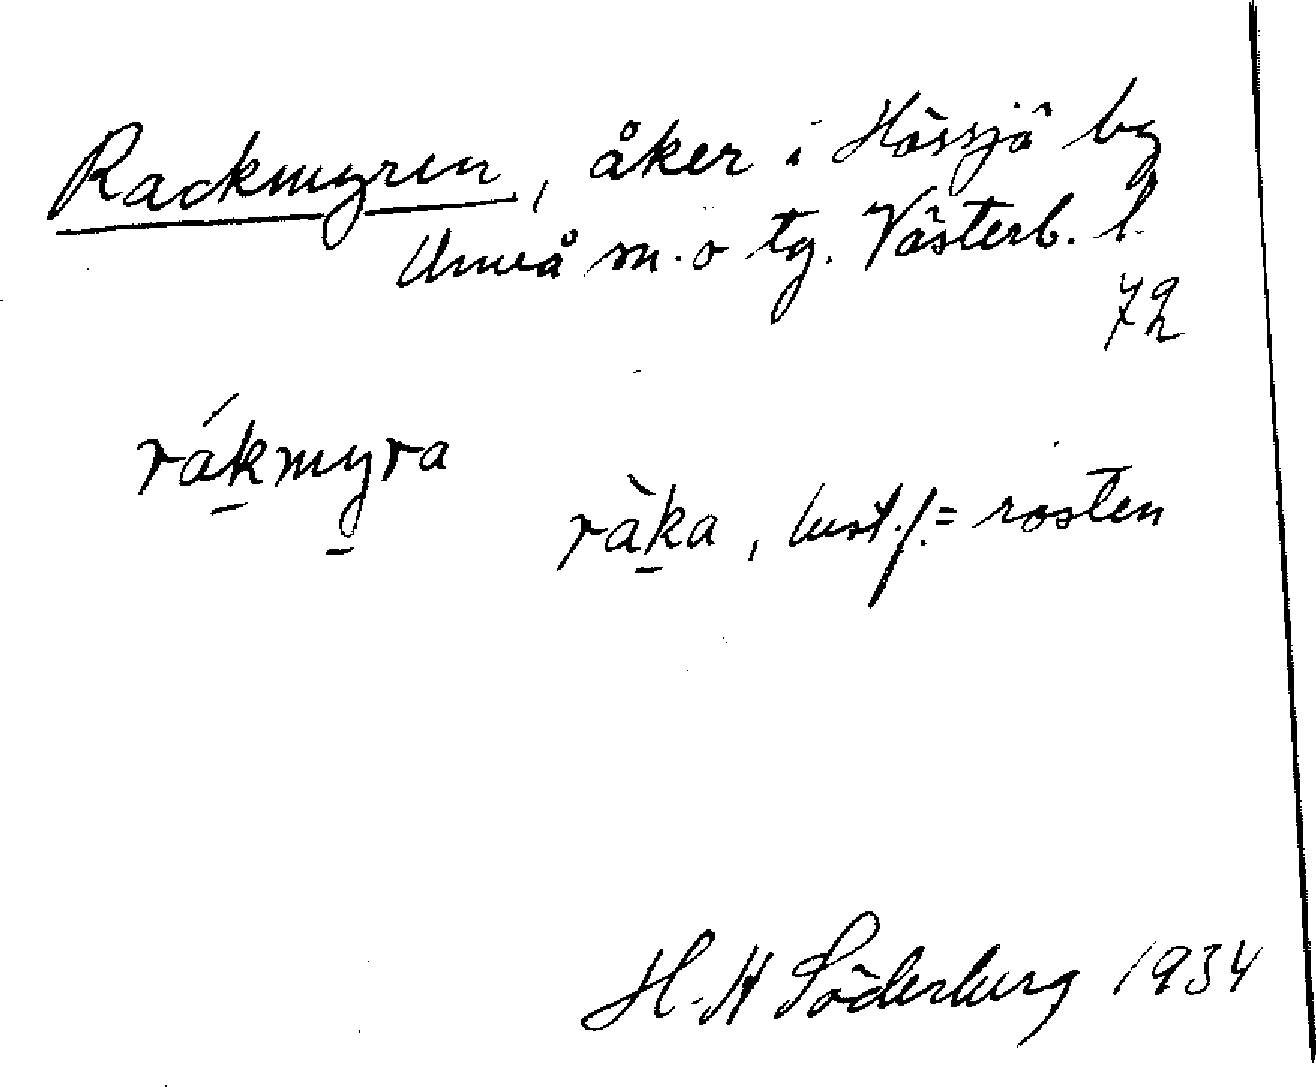 Rackmyren, åker i Hössjö by
Umeå m. o tg. Västerb. l.
72
rákmyra
ràka, best. f. = rosten
H. H Söderberg 1934